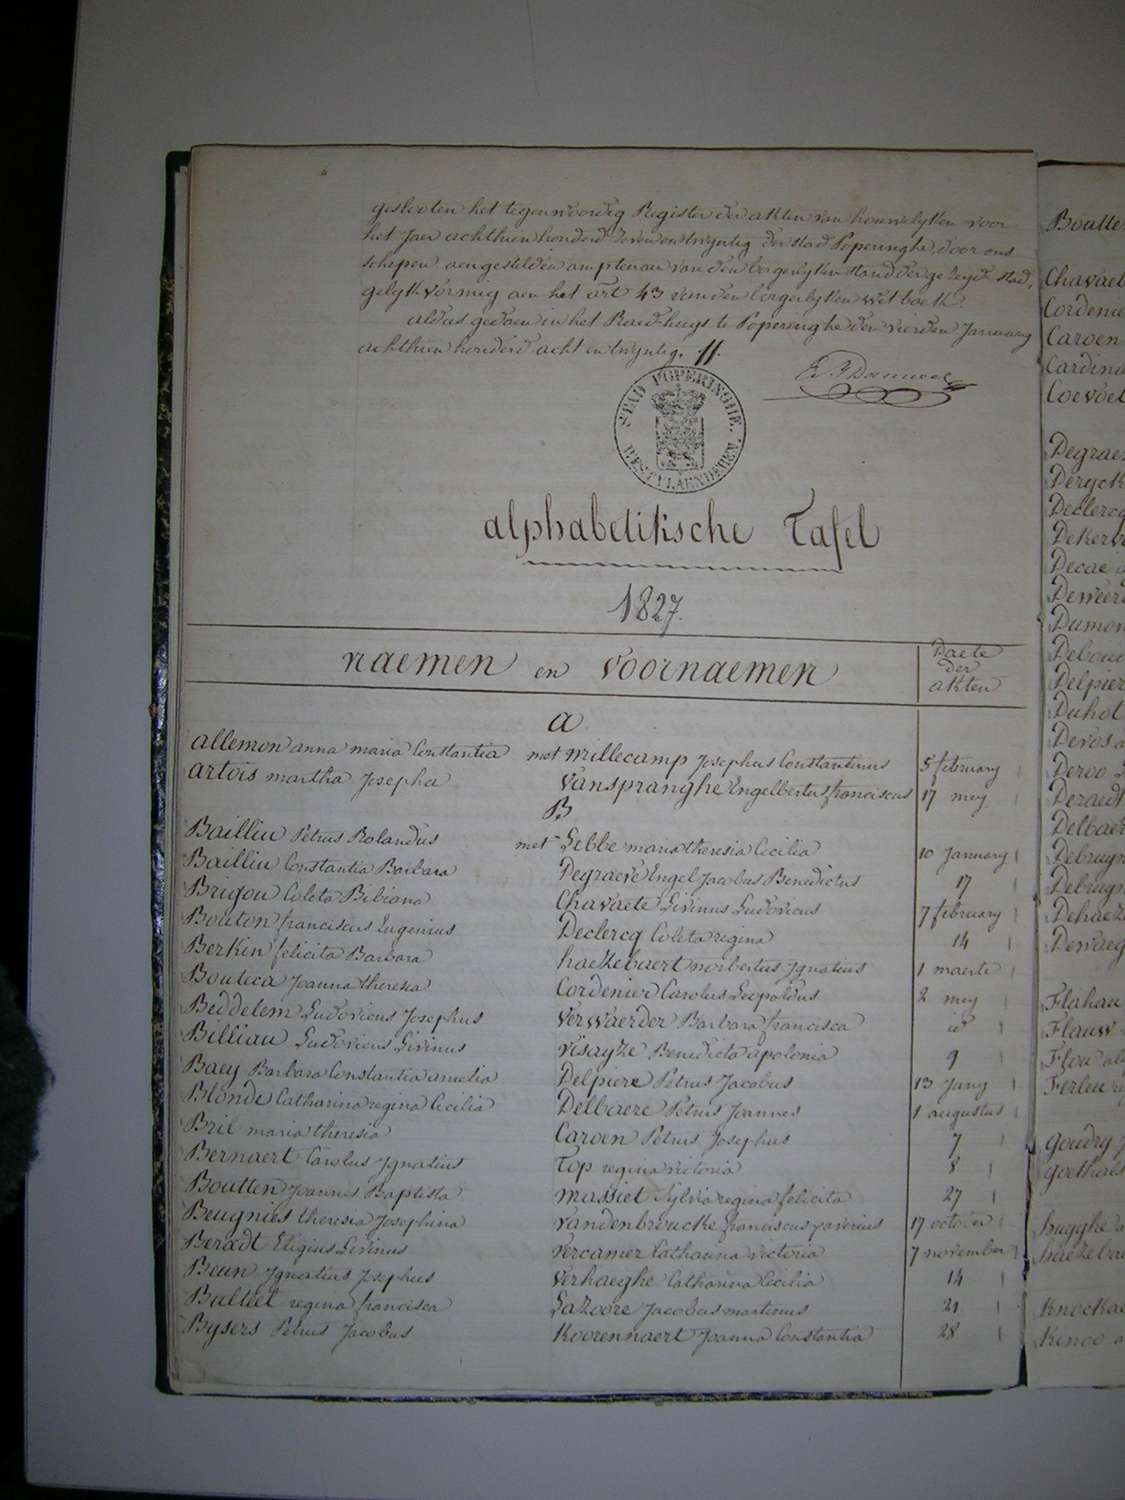 gesloten het tegenwoordig Register der akten van houwelyken voor
het Jaer achthien honderd zeven en twyntig der stad Poperinghe, door ons
schepen aengestelden amptenaer van den borgerlyken stand der gezeyde stad,
gelykvormig aen het art 43 van den borgerlyken wet boek.
aldus gedaen in het Raedhuys te Poperinghe den vierden January
achthien honderd acht en twyntig.
STAD POPERINGHE.
WESTVLAENDEREN.
alphabetiksche Tafel
1827.
naemen en voornaemen
Daete
der
akten
a
allemon anna maria Constantia met millecamp Josephus Constantinus 5 february
artois martha Josepha Vanspranghe Engelbertus franciscus 17 mey
B
Bailliu Petrus Rolandus met Lebbe maria theresia Cecilia 10 January
Bailliu Constantia Barbara Degraeve Engel Jacobus Benedictus 17
Brigou Coleta Bibiana Chavaete Livinus Ludovicus 7 february
Bouton franciscus Eugenius Declercq Coleta regina 14
Berkin felicita Barbara haezebaert norbertus Ignatius 1 maerte
Boutica Joanna theresia Cordenier Carolus Leopoldus 2 mey
Beddelem Ludovicus Josephus Verwaerder Barbara francisca id
Billiau Ludovicus Livinus visayze Benedicta apolonia 9
Baey Barbara Constantia amelia Delpiere Petrus Jacobus 13 Juny
Blonde Catharina regina Cecilia Delbaere Petrus Joannes 1 augustus
Bril maria theresia Caroen Petrus Josephus 7
Bernaert Carolus Ignatius Top regina victoria 8
Boutten Joannes Baptista massiet Sylvia regina felicita 27
Beugnies theresia Josephina vandenbroucke franciscus xaverius 17 october
Beradt Eligius Livinus vercamer Catharina victoria 7 november
Beun Ignatius Josephus Verhaeghe Catharina Cecilia 14
Bulteel regina francisca Lazoore Jacobus martinus 21
Bysers Petrus Jacobus Koorennaert Joanna Constantia 28
Boutte
Chavaet
Cordenie
Caroen
Cardina
Coevoet
Degrae
Deryck
Declercq
Dekerv
Decae
Deweer
Dumon
Debou
Delpier
Duhot
Devos a
Deroo
Deraedt
Delbaer
Debruyn
Debruyn
Dehaez
Dewaeg
Flahau
Flauw
Flou al
Ferleu
Goudry
goethals
hugghe
haezeba
Knockae
Kinoo a